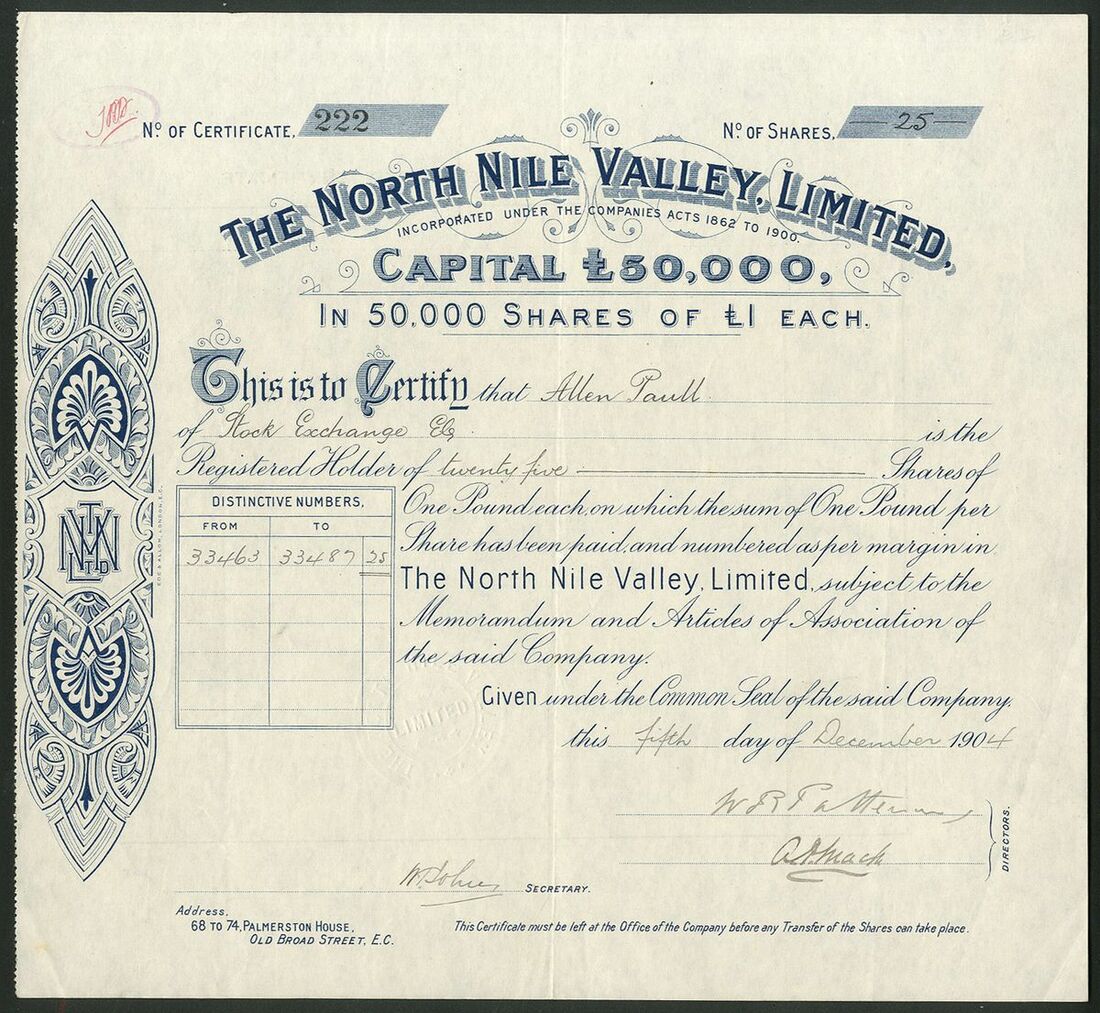 No. OF CERTIFICATE, 222
No. OF SHARES, 25
THE NORTH NILE VALLEY, LIMITED,
INCORPORATED UNDER THE COMPANIES ACTS 1862 TO 1900.
CAPITAL £50,000,
IN 50,000 SHARES OF £1 EACH.
This is to Certify that Allen Paull
of Stock Exchange EC is the
Registered Holder of twenty five Shares of
DISTINCTIVE NUMBERS,
FROM TO
33463 33487 25
One Pound each, on which the sum of One Pound per
Share has been paid, and numbered as per margin in
The North Nile Valley, Limited, subject to the
Memorandum and Articles of Association of
the said Company.
Given under the Common Seal of the said Company,
this fifth day of December 1904
DIRECTORS.
SECRETARY.
Address,
68 TO 74, PALMERSTON HOUSE,
OLD BROAD STREET, E.C.
This Certificate must be left at the Office of the Company before any Transfer of the Shares can take place.
LIMITED